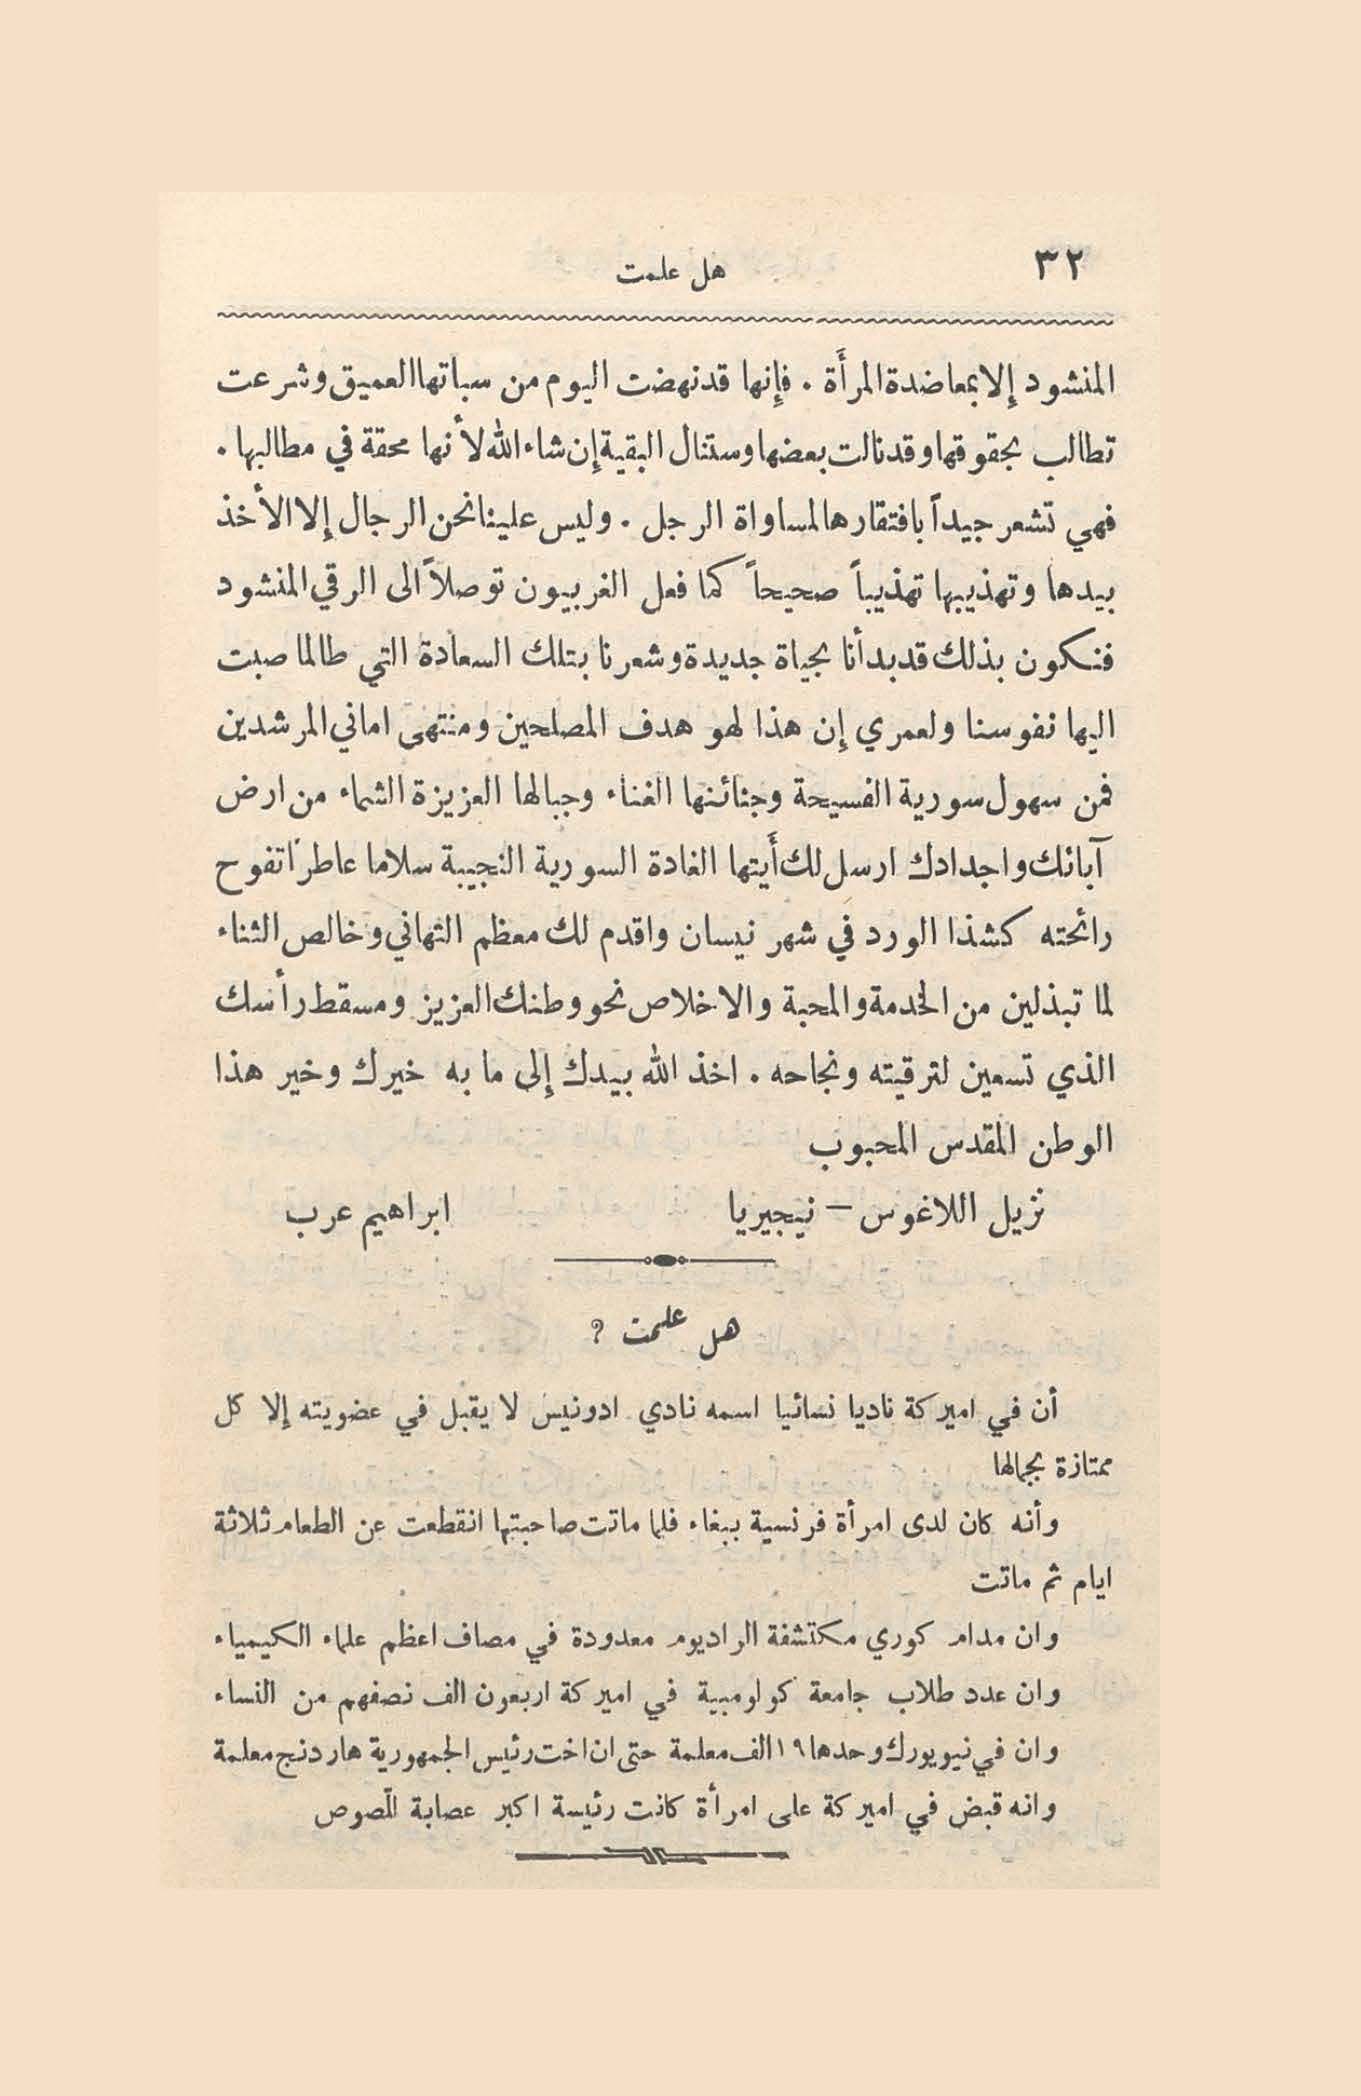 ٣٢
هل علمت
المنشود إلا بمعاضدة المرأَة . فإِنها قد نهضت اليوم من سباتها العميق وشرعت
تطالب بحقوقها وقد نالت بعضها وستنال البقية إِن شاء الله لأنها محقة في مطالبها .
فهي تشعر جيداً بافتقارها لمساواة الرجل . وليس علينا نحن الرجال إلا الأخذ
بيدها وتهذيبها تهذيباً صحيحاً كما فعل الغربيون توصلاً الى الرقي المنشود
فنكون بذلك قد بدأنا بحياة جديدة وشعرنا بتلك السعادة التي طالما صبت
اليها نفوسنا ولعمري إن هذا لهو هدف المصلحين ومنتهى اماني المرشدين
فمن سهول سورية الفسيحة وجنائنها الغناء وجبالها العزيزة الشماء من ارض
آبائك واجدادك ارسل لك أَيتها الغادة السورية النجيبة سلاما عاطرًا تفوح
رائحته كشذا الورد في شهر نيسان واقدم لك معظم التهاني وخالص الثناء
لما تبذلين من الخدمة والمحبة والاخلاص نحو وطنك العزيز ومسقط رأسك
الذي تسعين لترقيته ونجاحه . اخذ الله بيدك إلى ما به خيرك وخير هذا
الوطن المقدس المحبوب
نزيل اللاغوس – نيجيريا ابراهيم عرب
هل علمت ?
أن في اميركة ناديا نسائيا اسمه نادي ادونيس لا يقبل في عضويته إلا كل
ممتازة بجمالها
وأنه كان لدى امرأة فرنسية ببغاء فلما ماتت صاحبتها انقطعت عن الطعام ثلاثة
ايام ثم ماتت
وان مدام كوري مكتشفة الراديوم معدودة في مصاف اعظم علماء الكيمياء
وان عدد طلاب جامعة كولومبية في اميركة اربعون الف نصفهم من النساء
وان في نيويورك وحدها ١٩ الف معلمة حتى ان اخت رئيس الجمهورية هاردنج معلمة
وانه قبض في اميركة على امرأة كانت رئيسة اكبر عصابة للّصوص